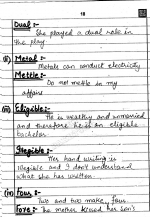 18
Dual :-
She played a dual role in
the play
(ii) Metal :-
Metals can conduct electricity
Mettle :-
Do not mettle in my
affairs
(iii) Eligible :-
He is wealthy and unmarried
and therefore he is an eligible
bachelor
Illegible :-
Her hand writing is
illegible and I don't understand
what she has written.
(iv) Four :-
Two and two make four
Fore :- The mother kissed her son's